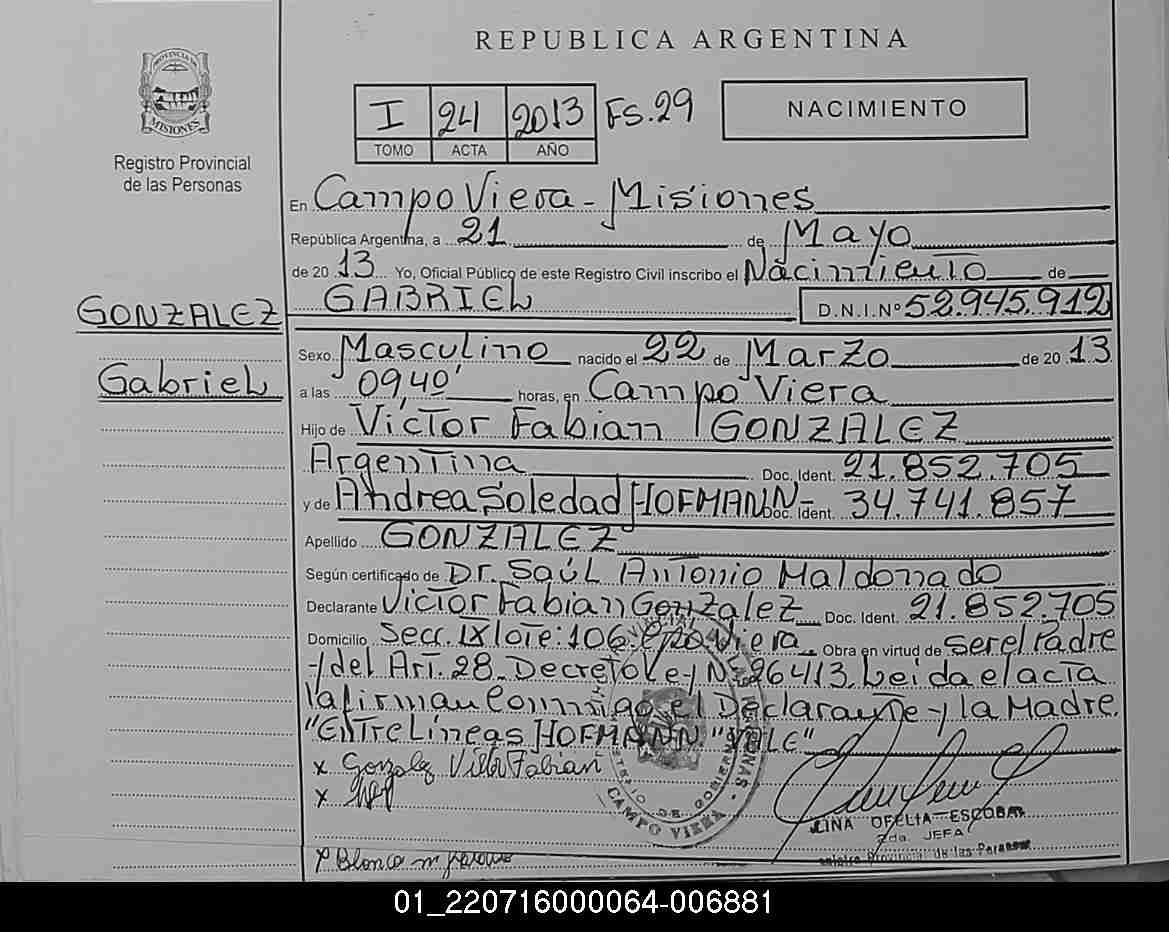 REPUBLICA ARGENTINA
PROVINCIA DE
MISIONES
Registro Provincial
de las Personas
I 24 2013 Fs. 29
TOMO ACTA AÑO
NACIMIENTO
En Campo Viera - Misiones
República Argentina, a 21 de Mayo
de 2013 Yo, Oficial Público de este Registro Civil inscribo el Nacimiento de
GABRIEL D.N.I.Nº 52.945.912
GONZALEZ
Gabriel
Sexo Masculino nacido el 22 de Marzo de 2013
a las 09,40' horas, en Campo Viera
Hijo de Victor Fabian GONZALEZ
Argentina Doc. Ident. 21.852.705
y de Andrea Soledad HOFMANN- Doc. Ident. 34.741.857
Apellido GONZALEZ
Según certificado de Dr. Saúl Antonio Maldonado
Declarante Victor Fabian Gonzalez Doc. Ident. 21.852.705
Domicilio Secc. IX lote: 106. Cpo Viera Obra en virtud de ser el Padre
y del Art. 28 Decreto Ley Nº 26413. Leida el acta
la firman conmigo el Declarante y la Madre.
"Entre Lineas HOFMANN "VALE"
x Gonzalez Victor Fabian
x
CAMPO VIERA
LINA OFELIA ESCOBAR
2da. JEFA
Registro Provincial de las Personas
01_220716000064-006881